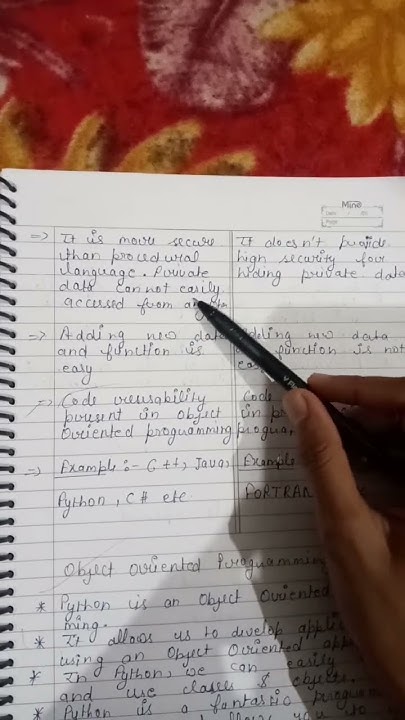 Mine
Date
Page
=> It is more secure
than procedural
language. Private
data can not easily
accessed from
It doesn't provide
high security for
hiding private data
=> Adding new data
and function is
easy
Adding new data
function is not
=> Code reusability
present in object
Oriented programming
Code
=> Example :- C++, Java,
Python, C# etc
Example
FORTRAN
Object Oriented Programming
* Python is an Object Oriented
ming.
* It allows us to develop
using an Object Oriented
* In Python, we can easily
and use classes & objects.
* Python is a fantastic